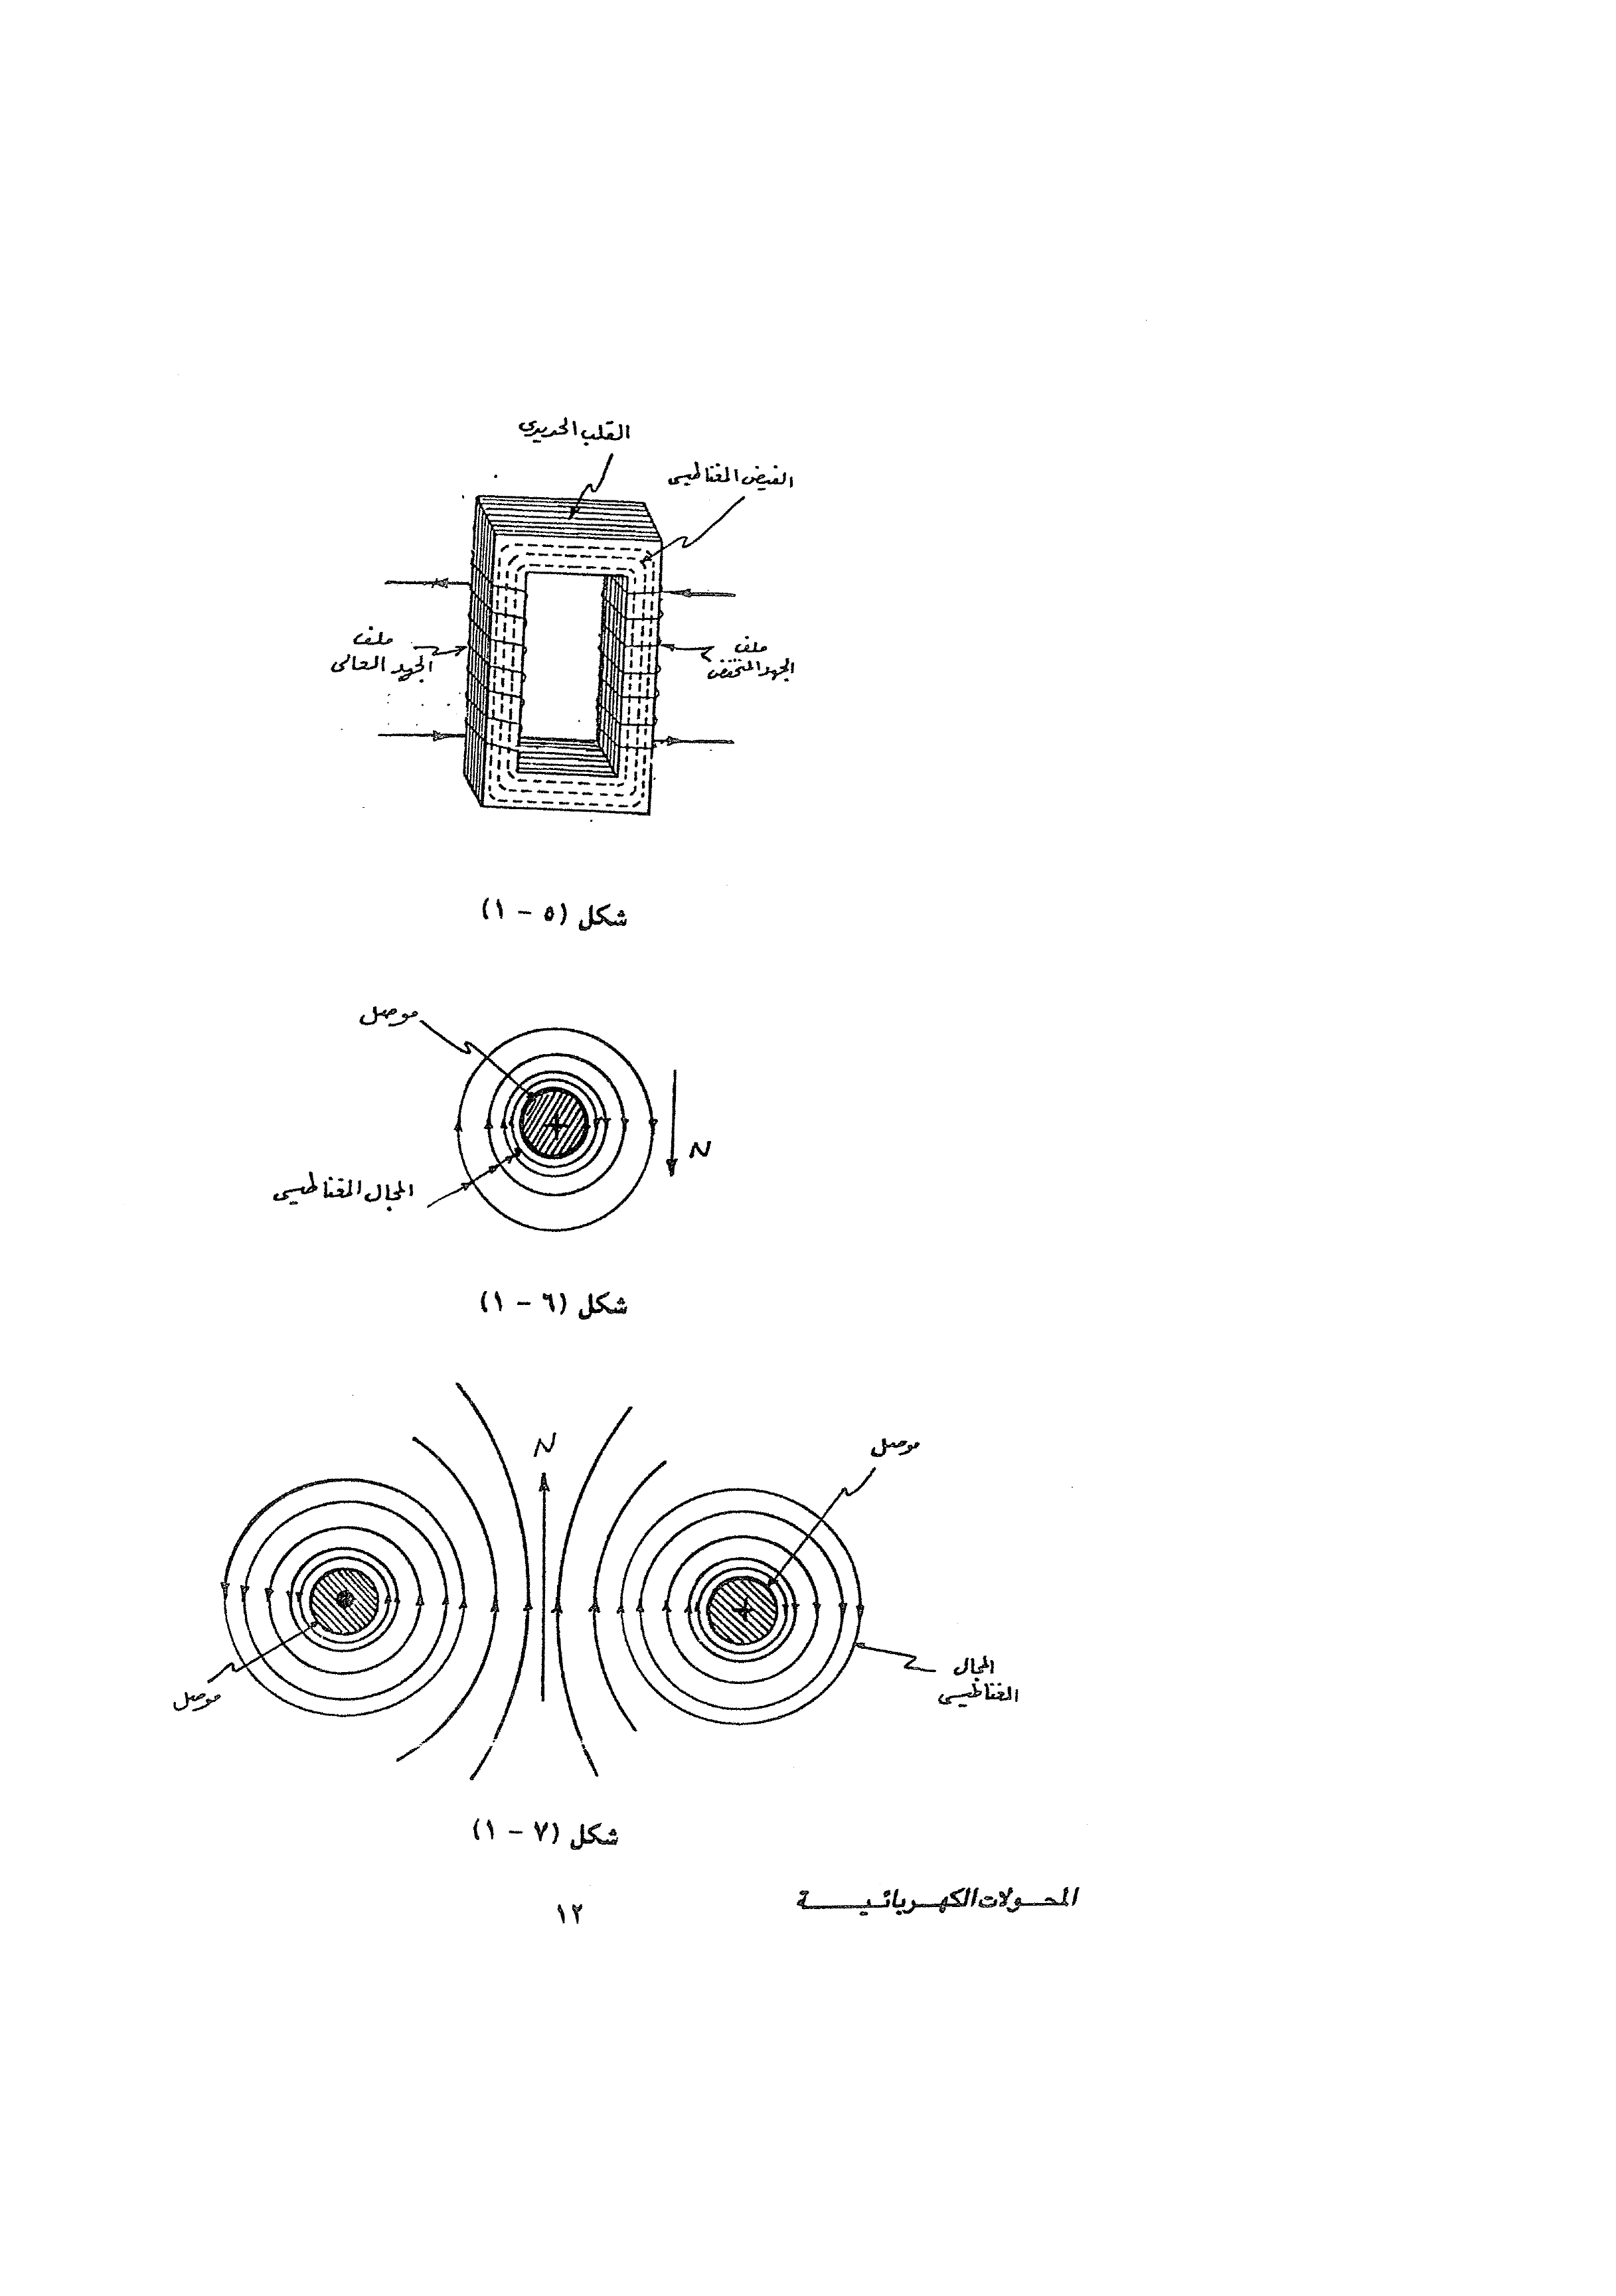 القلب الحديدي
الفيض المغناطيسى
ملف
الجهد العالى
ملف
الجهد المنخفض
شكل (٥ – ١)
موصل
المجال المغناطيسى
N
شكل (٦ – ١)
N
موصل
موصل
المجال
المغناطيسى
شكل (٧ – ١)
المحولات الكهربائية
١٢